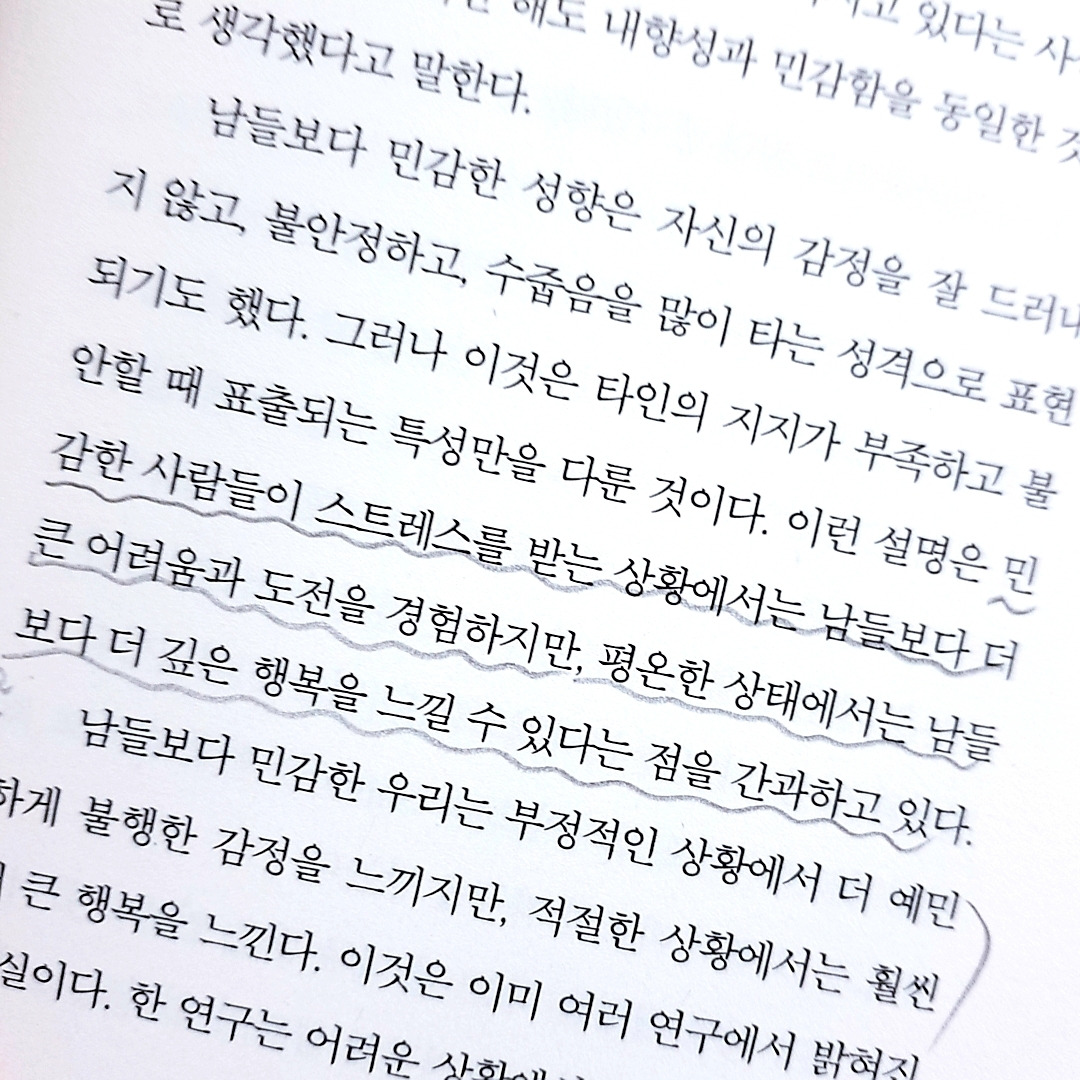 있다는
해도 내향성과 민감함을 동일한
로 생각했다고 말한다.
남들보다 민감한 성향은 자신의 감정을 잘 드러내
지 않고, 불안정하고, 수줍음을 많이 타는 성격으로 표현
되기도 했다. 그러나 이것은 타인의 지지가 부족하고 불
안할 때 표출되는 특성만을 다룬 것이다. 이런 설명은 민
감한 사람들이 스트레스를 받는 상황에서는 남들보다 더
큰 어려움과 도전을 경험하지만, 평온한 상태에서는 남들
보다 더 깊은 행복을 느낄 수 있다는 점을 간과하고 있다.
남들보다 민감한 우리는 부정적인 상황에서 더 예민
하게 불행한 감정을 느끼지만, 적절한 상황에서는 훨씬
큰 행복을 느낀다. 이것은 이미 여러 연구에서 밝혀진
실이다. 한 연구는 어려운